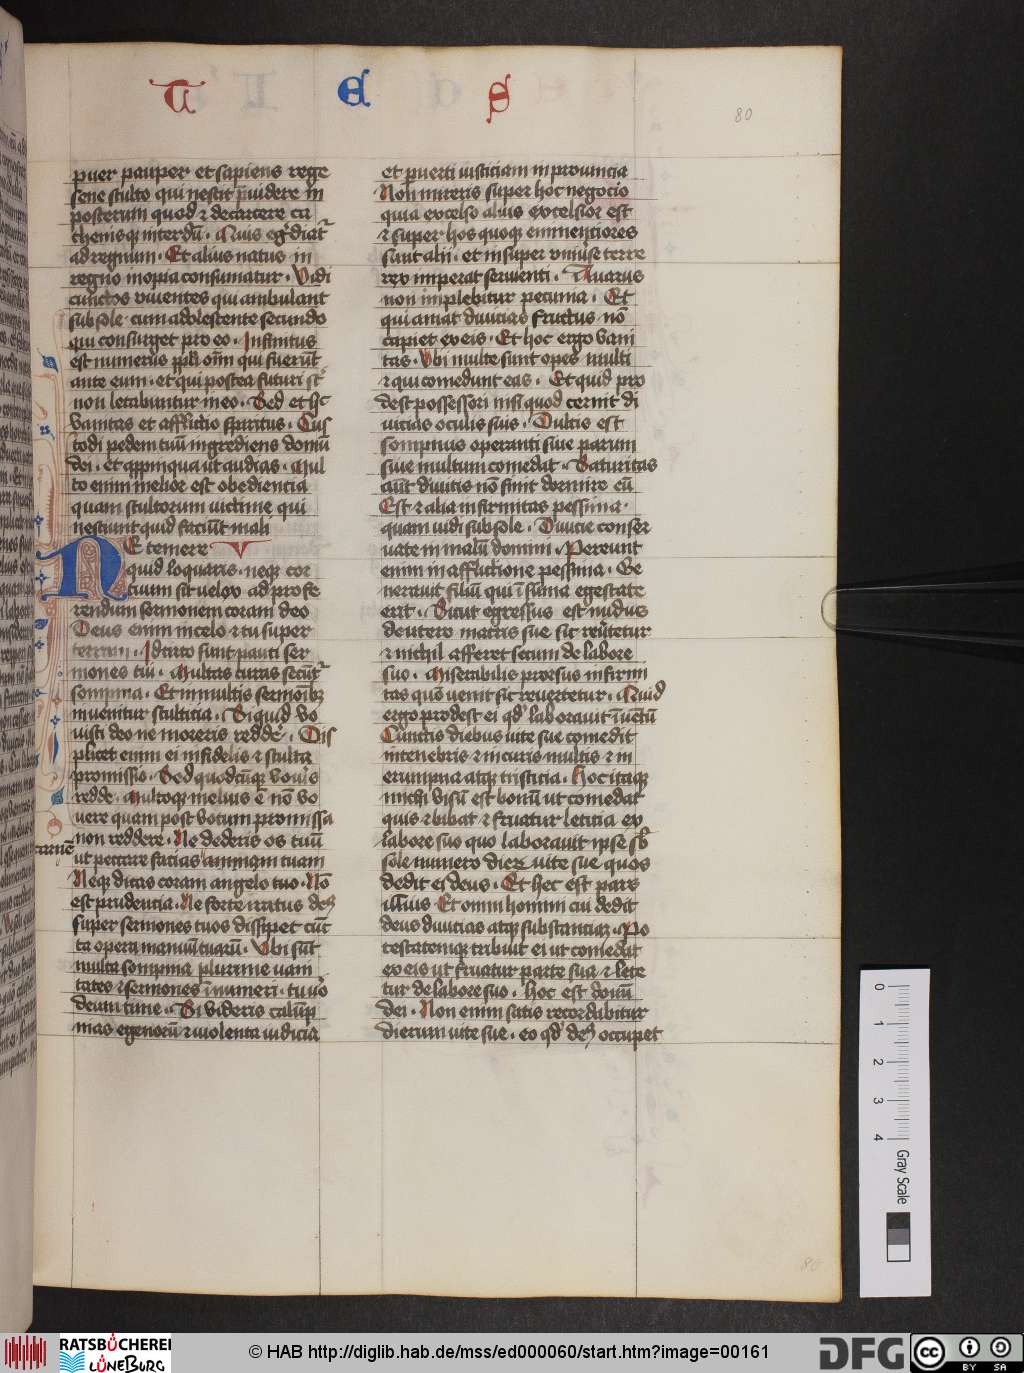 T E S
80
puer pauper et sapiens rege
sene stulto qui nescit p̄uidere in
posterum quod ⁊ de carcere ca
thenisq̄ interdū · Quis eg̾diat̾
ad regnum · Et alius natus in
regno inopia consumatur · Vidi
cunctos viuentes qui ambulant
sub sole cum adolescente secundo
qui consurget pro eo · Infinitus
est numerus pp̄li om̄i qui fuerūt
ante eum · et qui postea futuri st̾
non letabuntur in eo · Sed et hᷓ
vanitas et afflictio spiritus · Cus
todi pedem tuū ingrediens domū
dei · et appinqua ut audias · Mul
to enim melior est obediencia
quam stultorum victime qui
nesciunt quid faciūt mali
NE temere V
quid loquaris · neq̄ cor
tuum sit velox ad profe
rendum sermonem coram deo
Deus enim in celo ⁊ tu super
terram · Idcirco sunt pauci ser
mones tui · Multas curas secūt̾
sompnia · Et in multis sermōib
inuenitur stulticia · Si quid vo
uisti deo ne moreris reddē · Dis
plicet enim ei infidelis ⁊ stulta
promissio · Sed quodcūq̄ vouis
redde · Multoq̄ melius ē nō vo
uere quam post votum promissa
non reddere · Ne dederis os tuū
ut peccare facias animam tuam
carnē
Neq̄ dicas coram angelo tuo · Nō
est prudentia · Ne forte iratus deꝯ
super sermones tuos dissipet cūc
ta opera manuū tuarū · Vbi sūt
multa sompnia plurime vani
tates ⁊ sermones īnumeri · tu v̾o
deum time · Si videris calūp
nias egenorū ⁊ violenta iudicia
et puerti iusticiam in prouincia
Non mireris super hoc negocio
quia excelso alius excelsior est
⁊ super hos quoq̄ eminentiores
sunt alij · et insuper vniu̾se terre
rex imperat seruienti · Auarus
non implebitur pecunia · Et
qui amat diuicias fructus nō
capiet ex eis · Et hoc ergo vani
tas · Vbi multe sunt opes multi
⁊ qui comedunt eas · Et quid pro
dest possessori nisi quod cernit di
uicias oculis suis · Dulcis est
sompnus operanti siue parum
siue multum comedat · Saturitas
aūt diuitis nō sinit dormire eū
Est ⁊ alia infirmitas pessima ·
quam uidi sub sole · Diuicie conser
uate in malū domini · Pereunt
enim in afflictione pessima · Ge
nerauit filiū qui ī sūma egestate
erit · Sicut egressus est nudus
de utero matris sue sic reu̾tetur
⁊ nichil afferet secum de labore
suo · Miserabilis prorsus infirmi
tas quō uenit sic reuertetur · Quid
ergo prodest ei qd̾ laborauit ī uētū
Cunctis diebus uite sue comedit
in tenebris ⁊ in curis multis ⁊ in
erumpna atq̄ tristicia · Hoc itaq̄
michi visū est bonū ut comedat
quis ⁊ bibat ⁊ fruatur leticia ex
labore suo quo laborauit ipse sb̾
sole numero dieꝝ uite sue quos
dedit ei deus · Et hec est pars
illius Et omni homini cui dedit
deus diuicias atq̄ substanciaꝫ · Po
testatemq̄ tribuit ei ut comedat
ex eis ut fruatur parte sua ⁊ lete
tur de labore suo · hoc est donū
dei · Non enim satis recordabitur
dierum uite sue · eo qd̾ deꝯ occupet
80
0 1 2 3 4 Gray Scale
RATSBÜCHEREI
LÜNEBURG
© HAB http://diglib.hab.de/mss/ed000060/start.htm?image=00161
DFG
cc BY SA